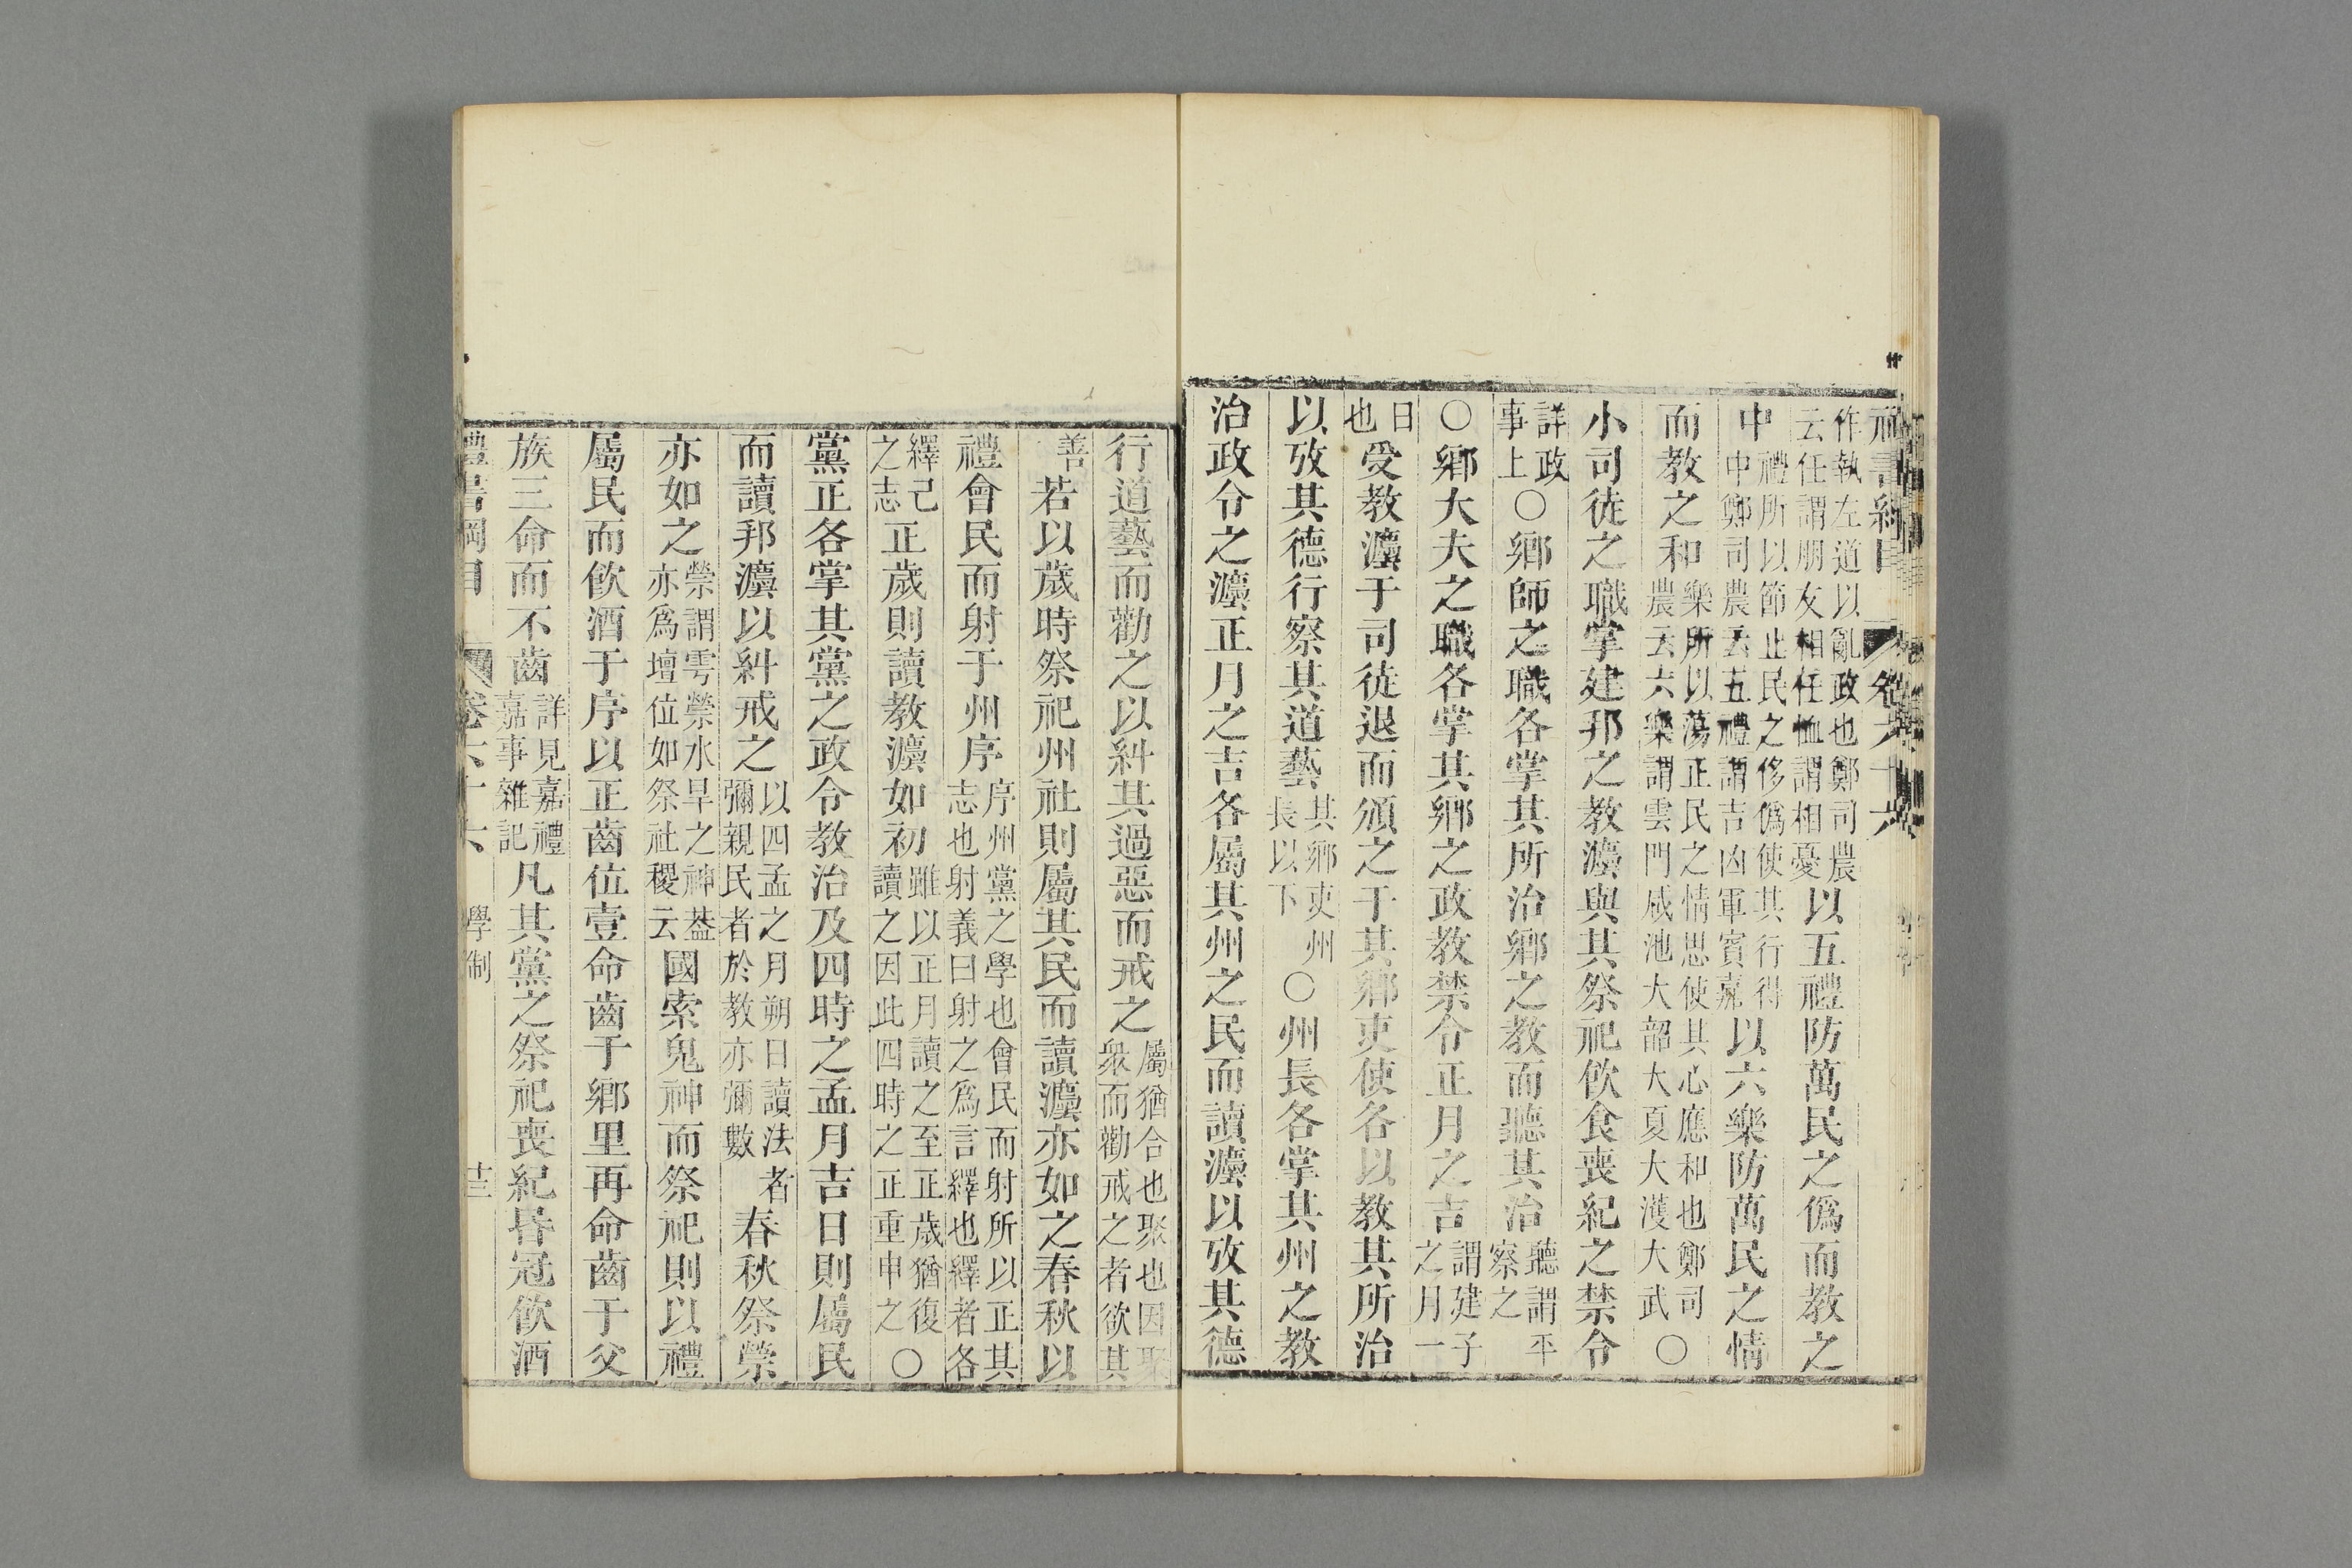 禮書綱目 卷六十六
作執左道以亂政也鄭司農云任謂朋友相任恤謂相憂以五禮防萬民之僞而教之
中禮所以節止民之侈僞使其行得中鄭司農云五禮謂吉凶軍賓嘉以六樂防萬民之情
而教之和樂所以蕩正民之情思使其心應和也鄭司農云六樂謂雲門咸池大韶大夏大濩大武○
小司徒之職掌建邦之教灋與其祭祀飲食喪紀之禁令
詳政事上○鄉師之職各掌其所治鄉之教而聽其治聽謂平察之
○鄉大夫之職各掌其鄉之政教禁令正月之吉謂建子之月一
日也受教灋于司徒退而頒之于其鄉吏使各以教其所治
以攷其德行察其道藝其鄉吏州長以下○州長各掌其州之教
治政令之灋正月之吉各屬其州之民而讀灋以攷其德
行道藝而勸之以糾其過惡而戒之屬猶合也聚也因聚衆而勸戒之者欲其
善若以歲時祭祀州社則屬其民而讀灋亦如之春秋以
禮會民而射于州序序州黨之學也會民而射所以正其志也射義曰射之爲言繹也繹者各
繹己之志正歲則讀教灋如初雖以正月讀之至正歲猶復讀之因此四時之正重申之○
黨正各掌其黨之政令教治及四時之孟月吉日則屬民
而讀邦灋以糾戒之以四孟之月朔日讀法者彌親民者於教亦彌數春秋祭禜
亦如之禜謂雩禜水旱之神葢亦爲壇位如祭社稷云國索鬼神而祭祀則以禮
屬民而飲酒于序以正齒位壹命齒于鄉里再命齒于父
族三命而不齒詳見嘉禮嘉事雜記凡其黨之祭祀喪紀昏冠飲酒
禮書綱目 卷六十六 學制 十三